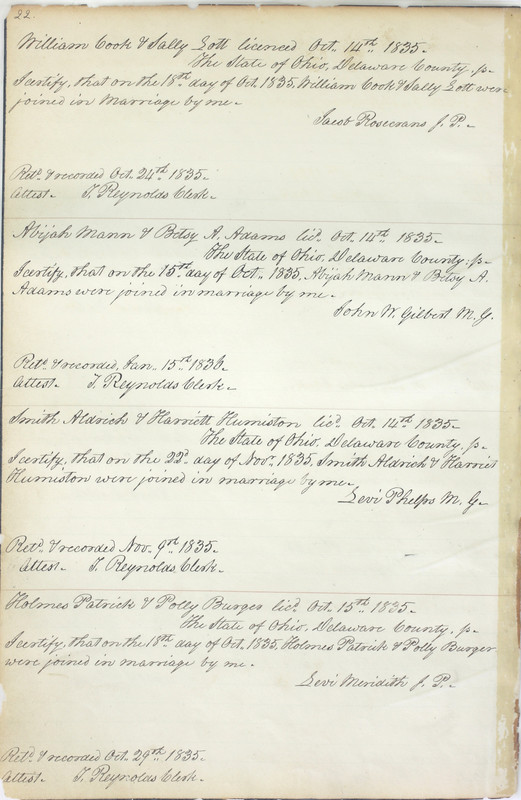 22.
William Cook & Sally Lott licenced Oct. 14th 1835.
The State of Ohio, Delaware County, ss.
I certify, that on the 18th day of Oct. 1835, William Cook & Sally Lott were
joined in Marriage by me.
Jacob Rosecrans J. P.
Retd. & recorded Oct. 24th 1835.
Attest. T. Reynolds Clerk.
Abijah Mann & Betsy A. Adams licd. Oct. 14th 1835.
The State of Ohio, Delaware County, ss.
I certify, that on the 15th day of Oct. 1835, Abijah Mann & Betsy A.
Adams were joined in marriage by me.
John W. Gilbert M. G.
Retd. & recorded, Jan. 15th 1836.
Attest. T. Reynolds Clerk.
Smith Aldrich & Harriett Humiston licd. Oct. 14th 1835.
The State of Ohio, Delaware County, ss.
I certify, that on the 22d. day of Novr. 1835, Smith Aldrich & Harriet
Humiston were joined in marriage by me.
Levi Phelps M. G.
Retd. & recorded Nov. 9th 1835.
Attest. T. Reynolds, Clerk.
Holmes Patrick & Polly Burger licd. Oct. 15th 1835.
The State of Ohio, Delaware County, ss.
I certify, that on the 18th day of Oct. 1835, Holmes Patrick & Polly Burger
were joined in marriage by me.
Levi Meridith J. P.
Retd. & recorded Oct. 29th 1835.
Attest. T. Reynolds Clerk.